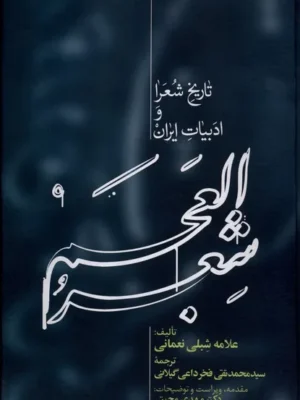 تاریخ شُعَرا
و
ادبیاتِ ایران
شِعرُ
العَجَم
تألیف:
علامه شِبلی نعمانی
ترجمهٔ
سیدمحمدتقی فخرداعی گیلانی
مقدمه، ویراست و توضیحات: